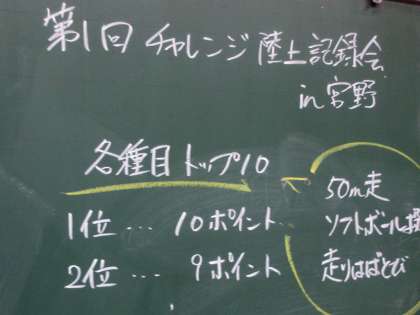 第1回 チャレンジ陸上記録会
in宮野
各種目トップ10
1位 … 10ポイント
2位 … 9ポイント
50m走
ソフトボール投
走りはばとび